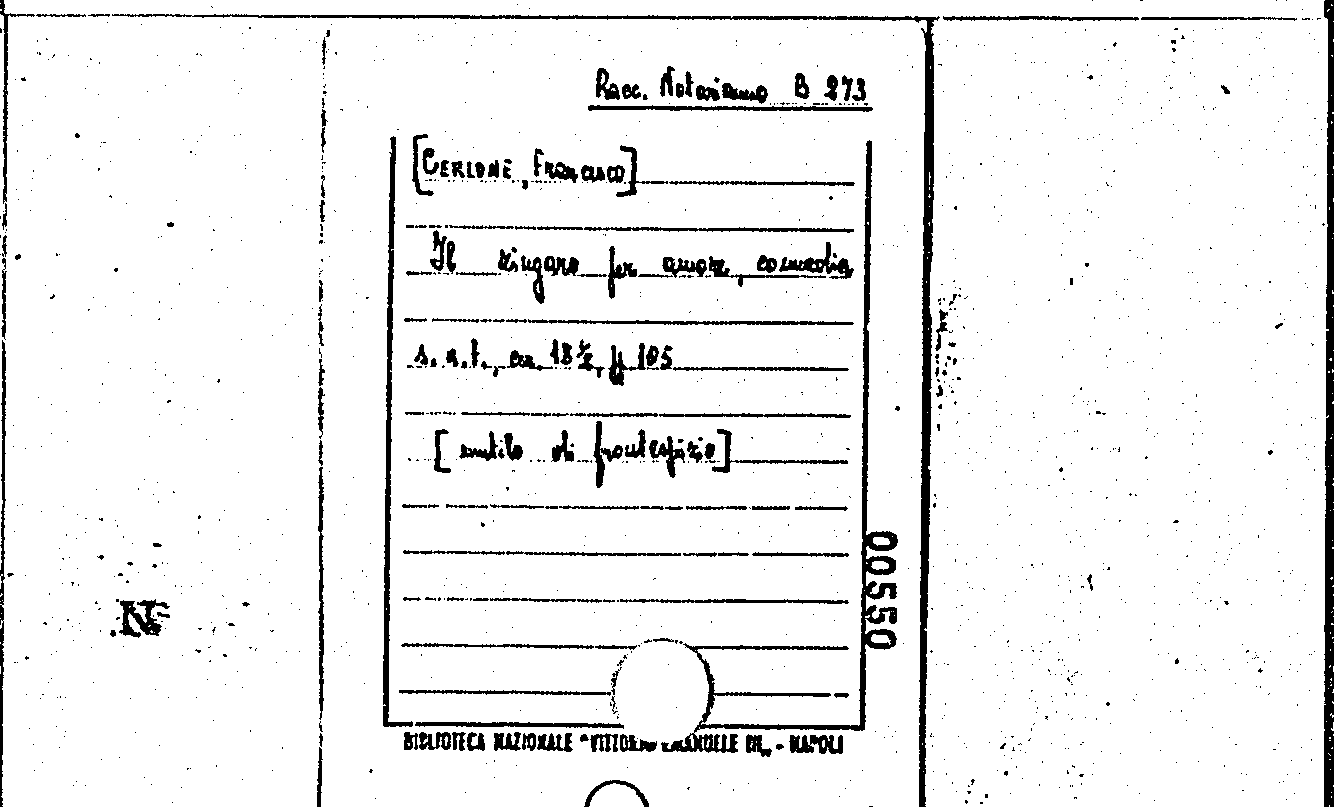 Racc. Notarianno B 273
[CERLONE, FRANCESCO]
Il zingaro per amore, commedia
s. n. t., 
105
[mutilo di frontespizio]
00550
BIBLIOTECA NAZIONALE "VITTORIO EMANUELE III„ - NAPOLI